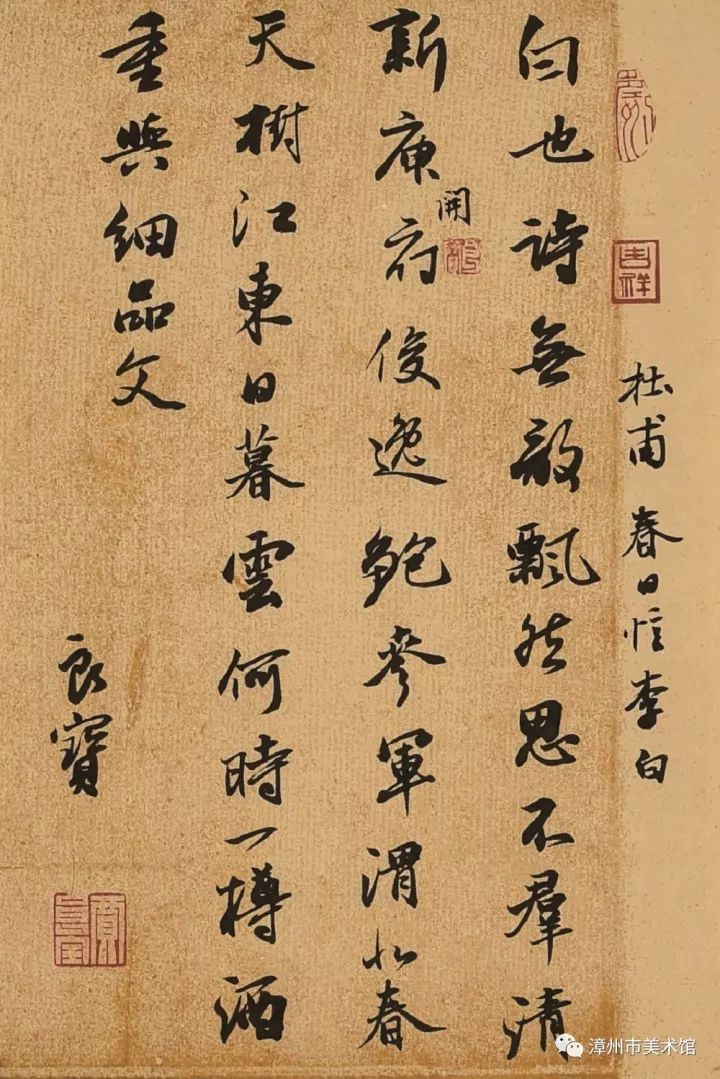 杜甫 春日忆李白
吉祥
白也诗無敌飄然思不羣清
新庾府俊逸鲍参軍渭北春
開
天樹江東日暮雲何時一樽酒
重與细品文
良寶
漳州市美术馆